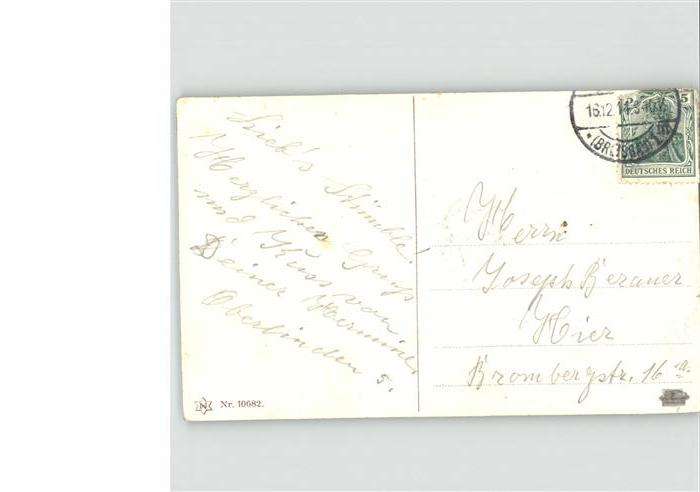 Lieb's Stümble!
Herzlichen Gruß
und Kuss von
Deiner Hermine.
Oberlinden 5.
Nr. 10682.
16.12.14
(BREISGAU)
5
DEUTSCHES REICH
Herrn
Joseph Berauer
Hier
Brombergstr. 16 a.